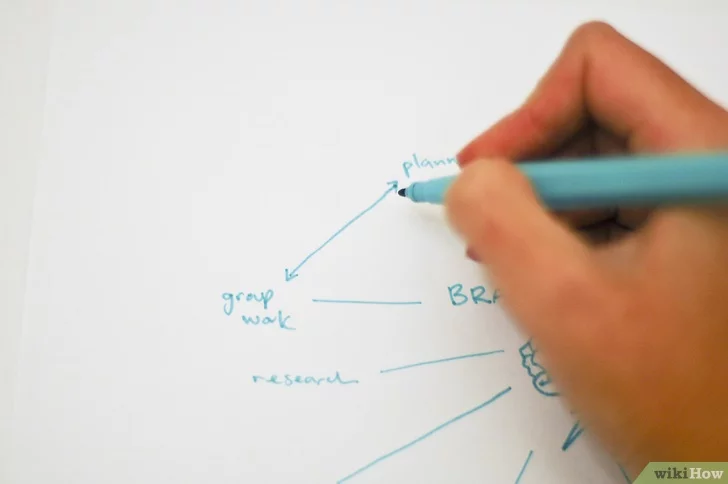 plann
group
work
BRA
research
wikiHow